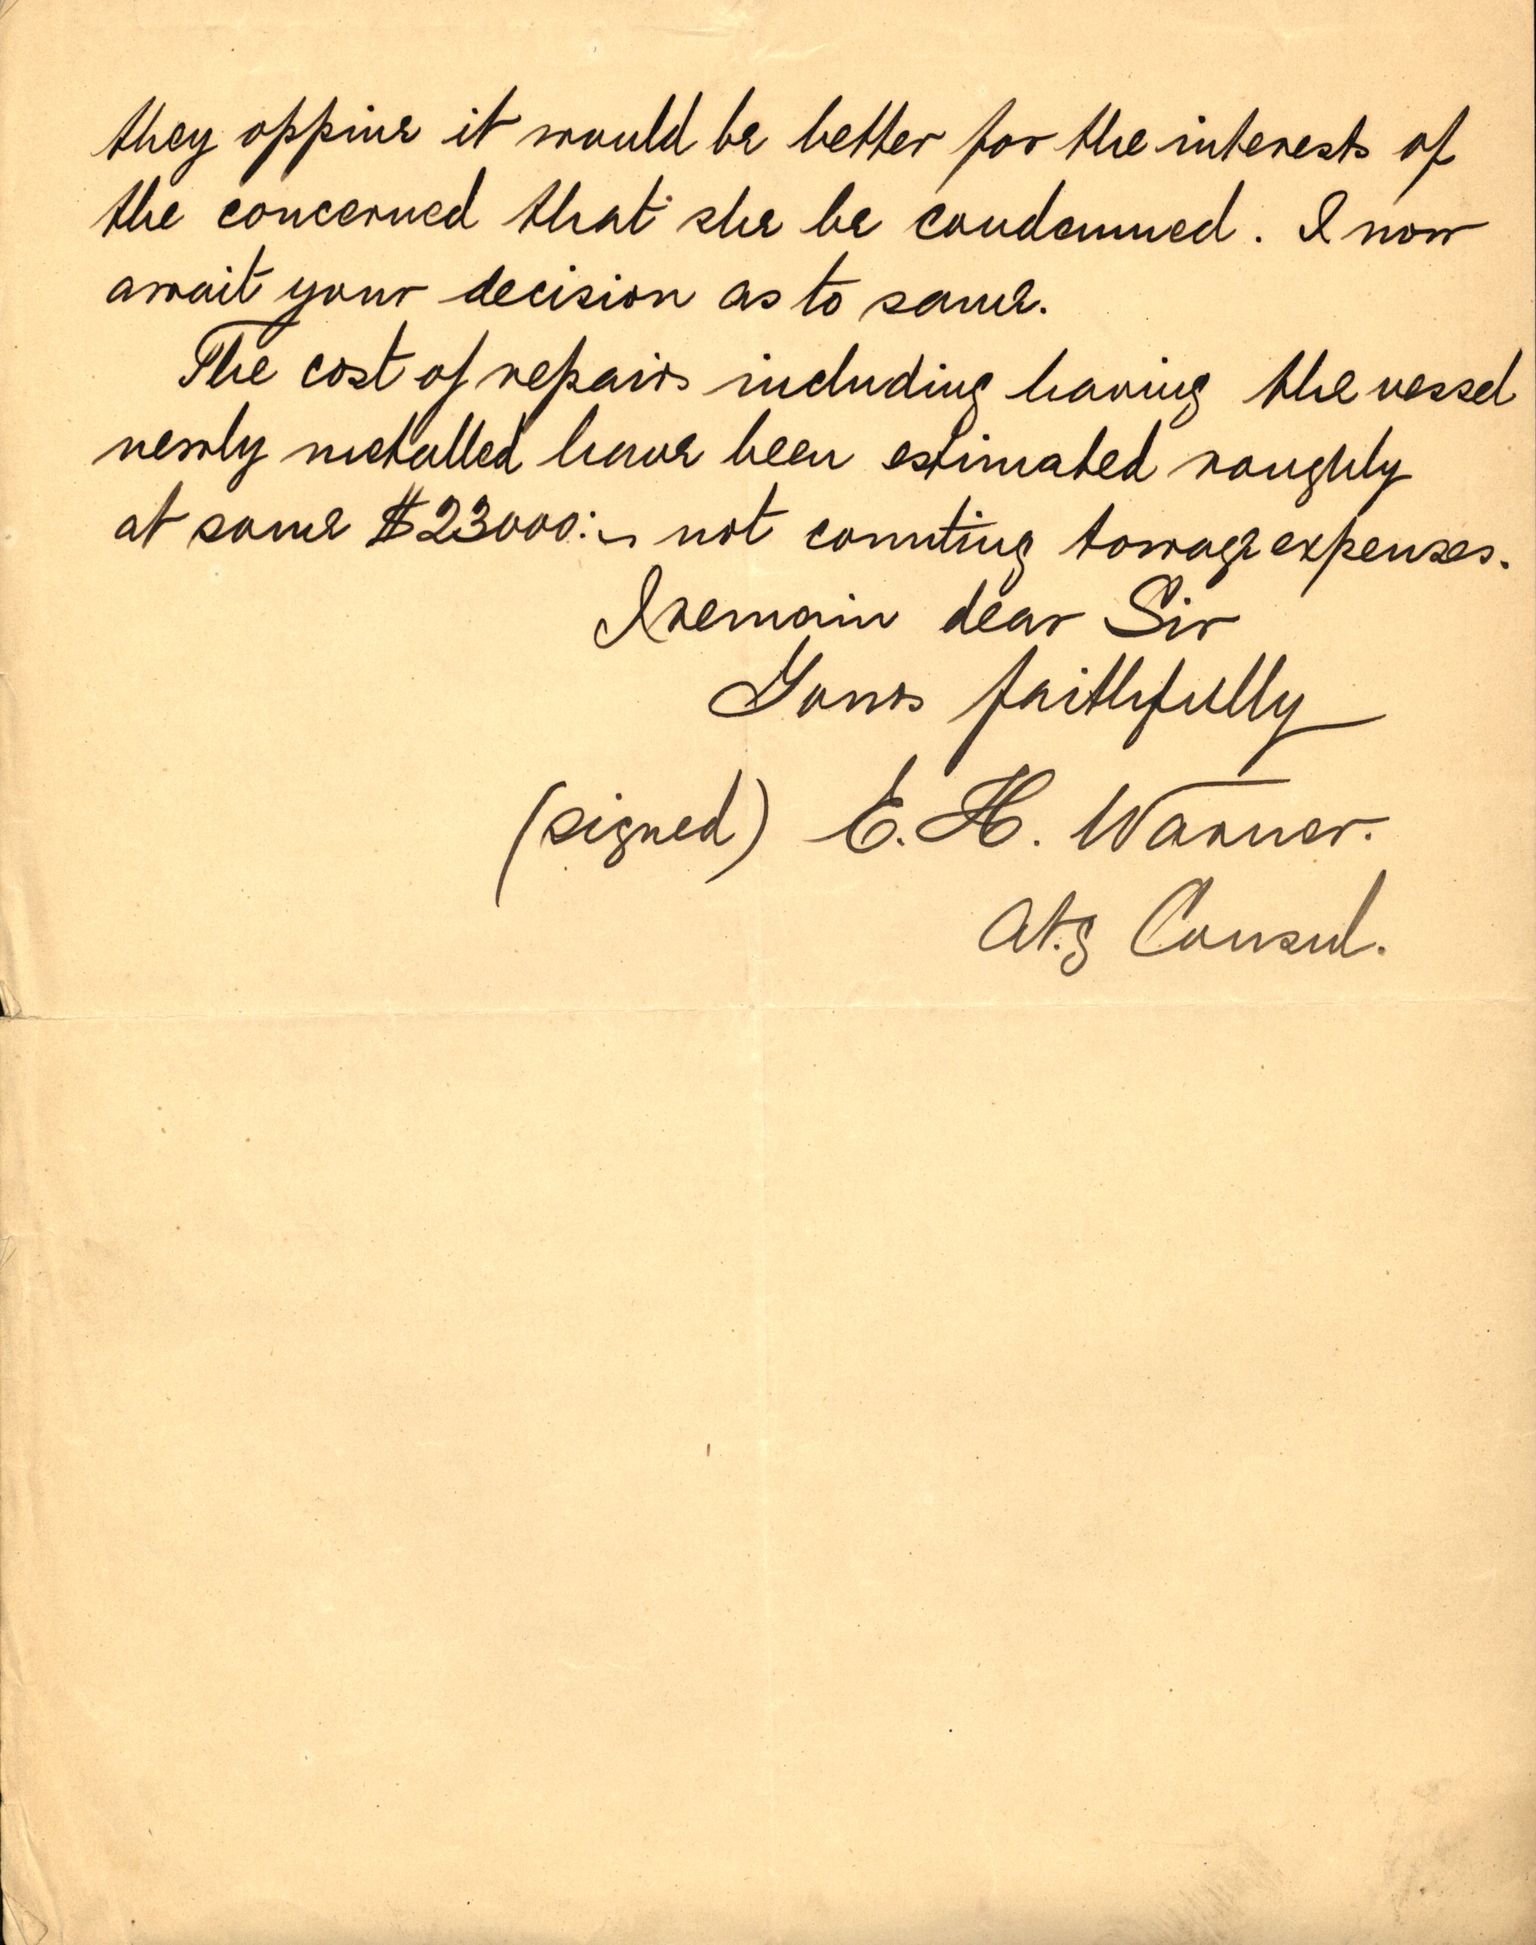 they oppine it would be better for the interests of
the concerned that she be condemned. I now
await your decision as to same.
The cost of repairs including having the vessel
newly metalled have been estimated roughly
at some $23000:- not counting towage expenses.
I remain dear Sir
Yours faithfully
(signed) E. H. Warner.
Atg Consul.